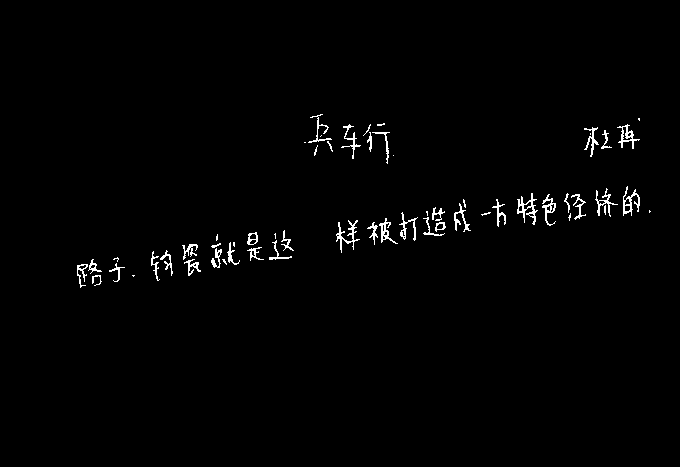 兵车行 杜甫
路子.钧瓷就是这 样被打造成一方特色经济的.